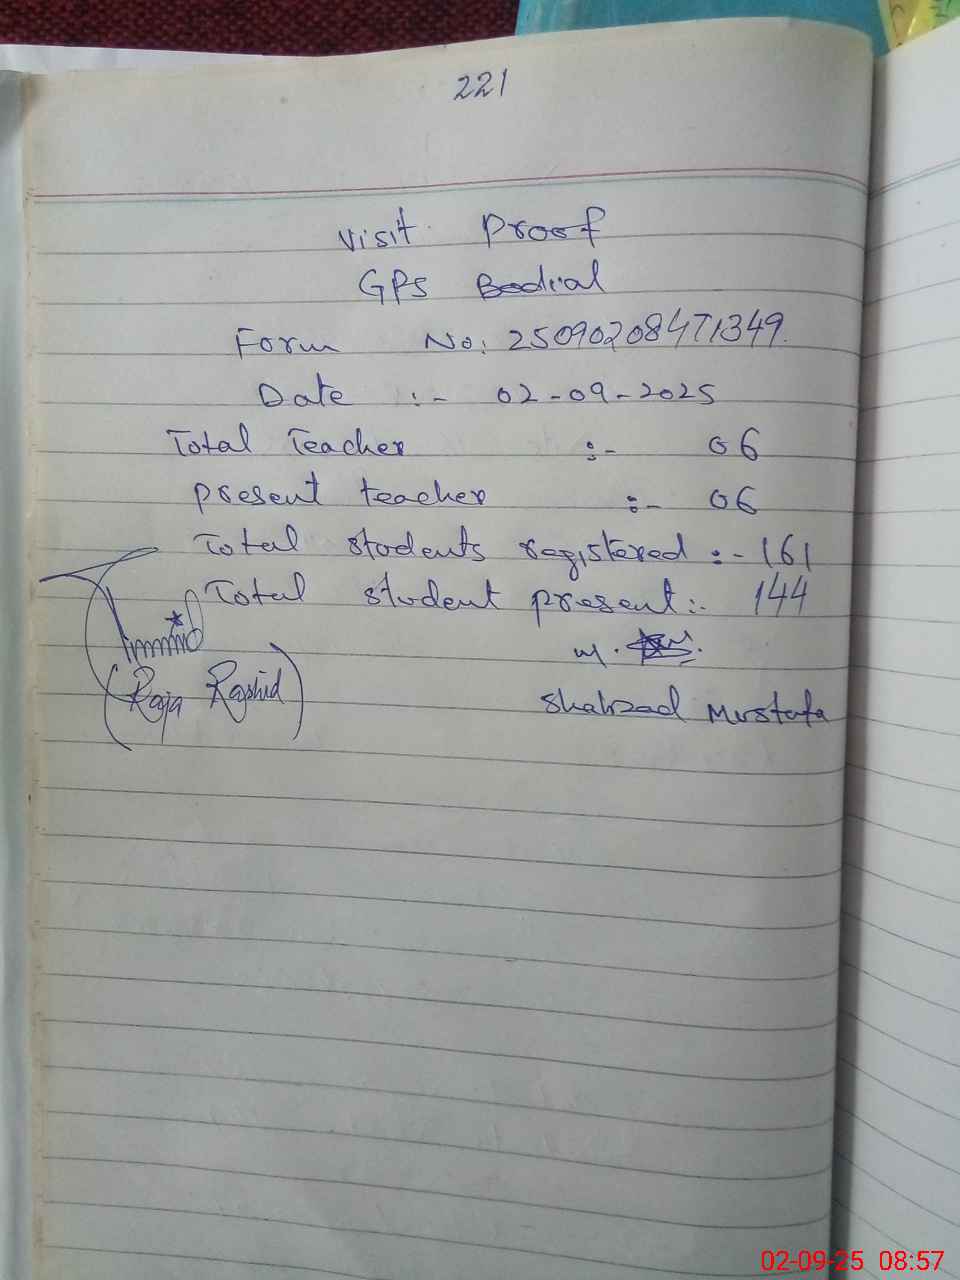 221
Visit Proof
GPS Bodial
Form No: 25090208471349
Date :- 02-09-2025
Total Teacher :- 06
present teacher :- 06
Total students registered :- 161
Total student present :- 144
(Raja Rashid)
Shahzad Mustafa
02-09-25 08:57